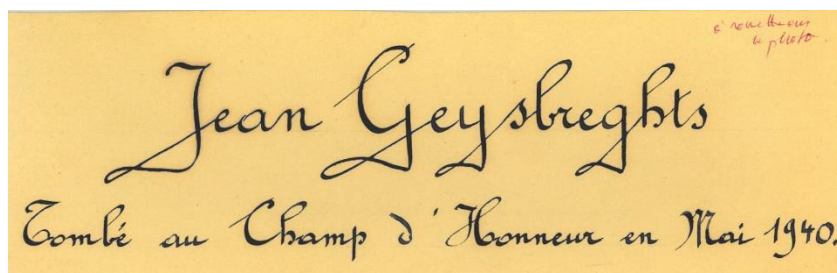 à
photo.
Jean Geysbreghts
Tombé au Champ d'Honneur en Mai 1940.